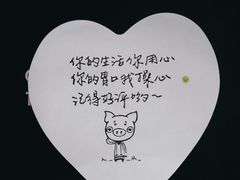 你的生活你用心
你的胃口我操心
记得好评哟～